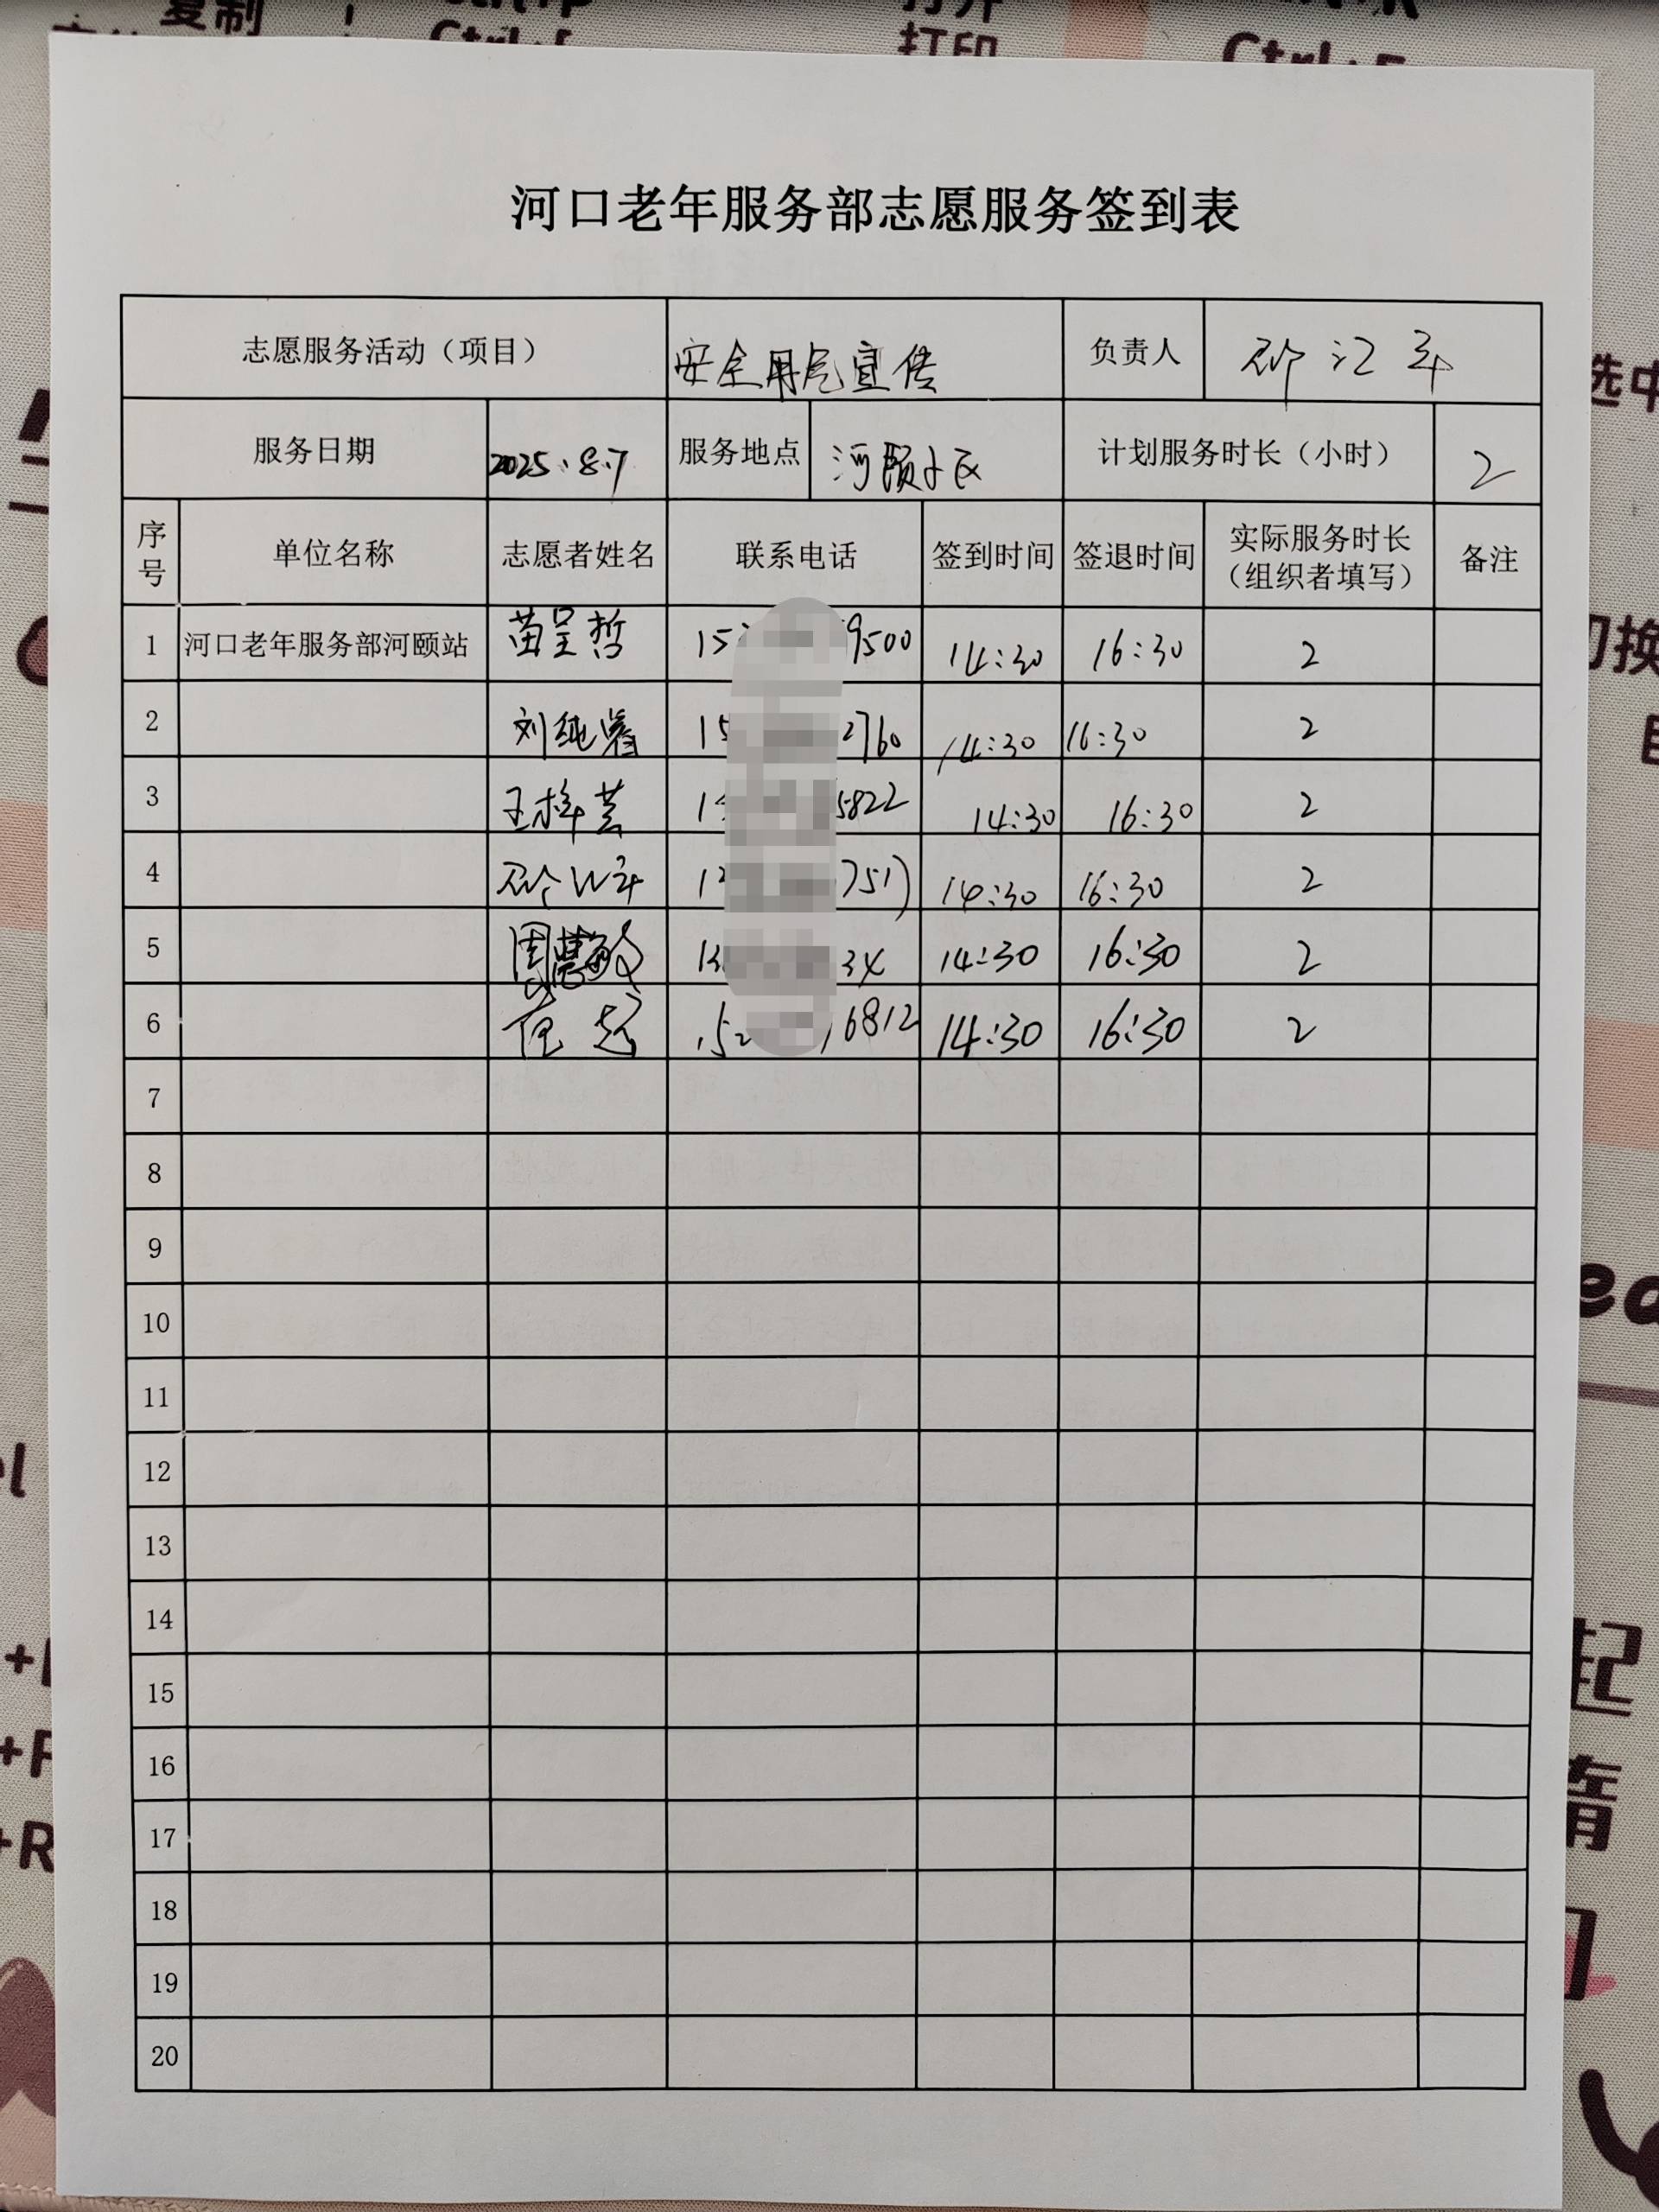 复制
打开
打印
河口老年服务部志愿服务签到表
志愿服务活动（项目） 安全用气宣传 负责人
服务日期 2025.8.7 服务地点 河颐小区 计划服务时长（小时） 2
序号 单位名称 志愿者姓名 联系电话 签到时间 签退时间 实际服务时长（组织者填写） 备注
1 河口老年服务部河颐站 苗呈哲 15 9500 14:30 16:30 2
2 刘纯 15 2760 14:30 16:30 2
3 王梓芸 1 5822 14:30 16:30 2
4 1 751 14:30 16:30 2
5 周慧敏 13 34 14:30 16:30 2
6 范超 152 16812 14:30 16:30 2
7
8
9
10
11
12
13
14
15
16
17
18
19
20
选中
切换
起